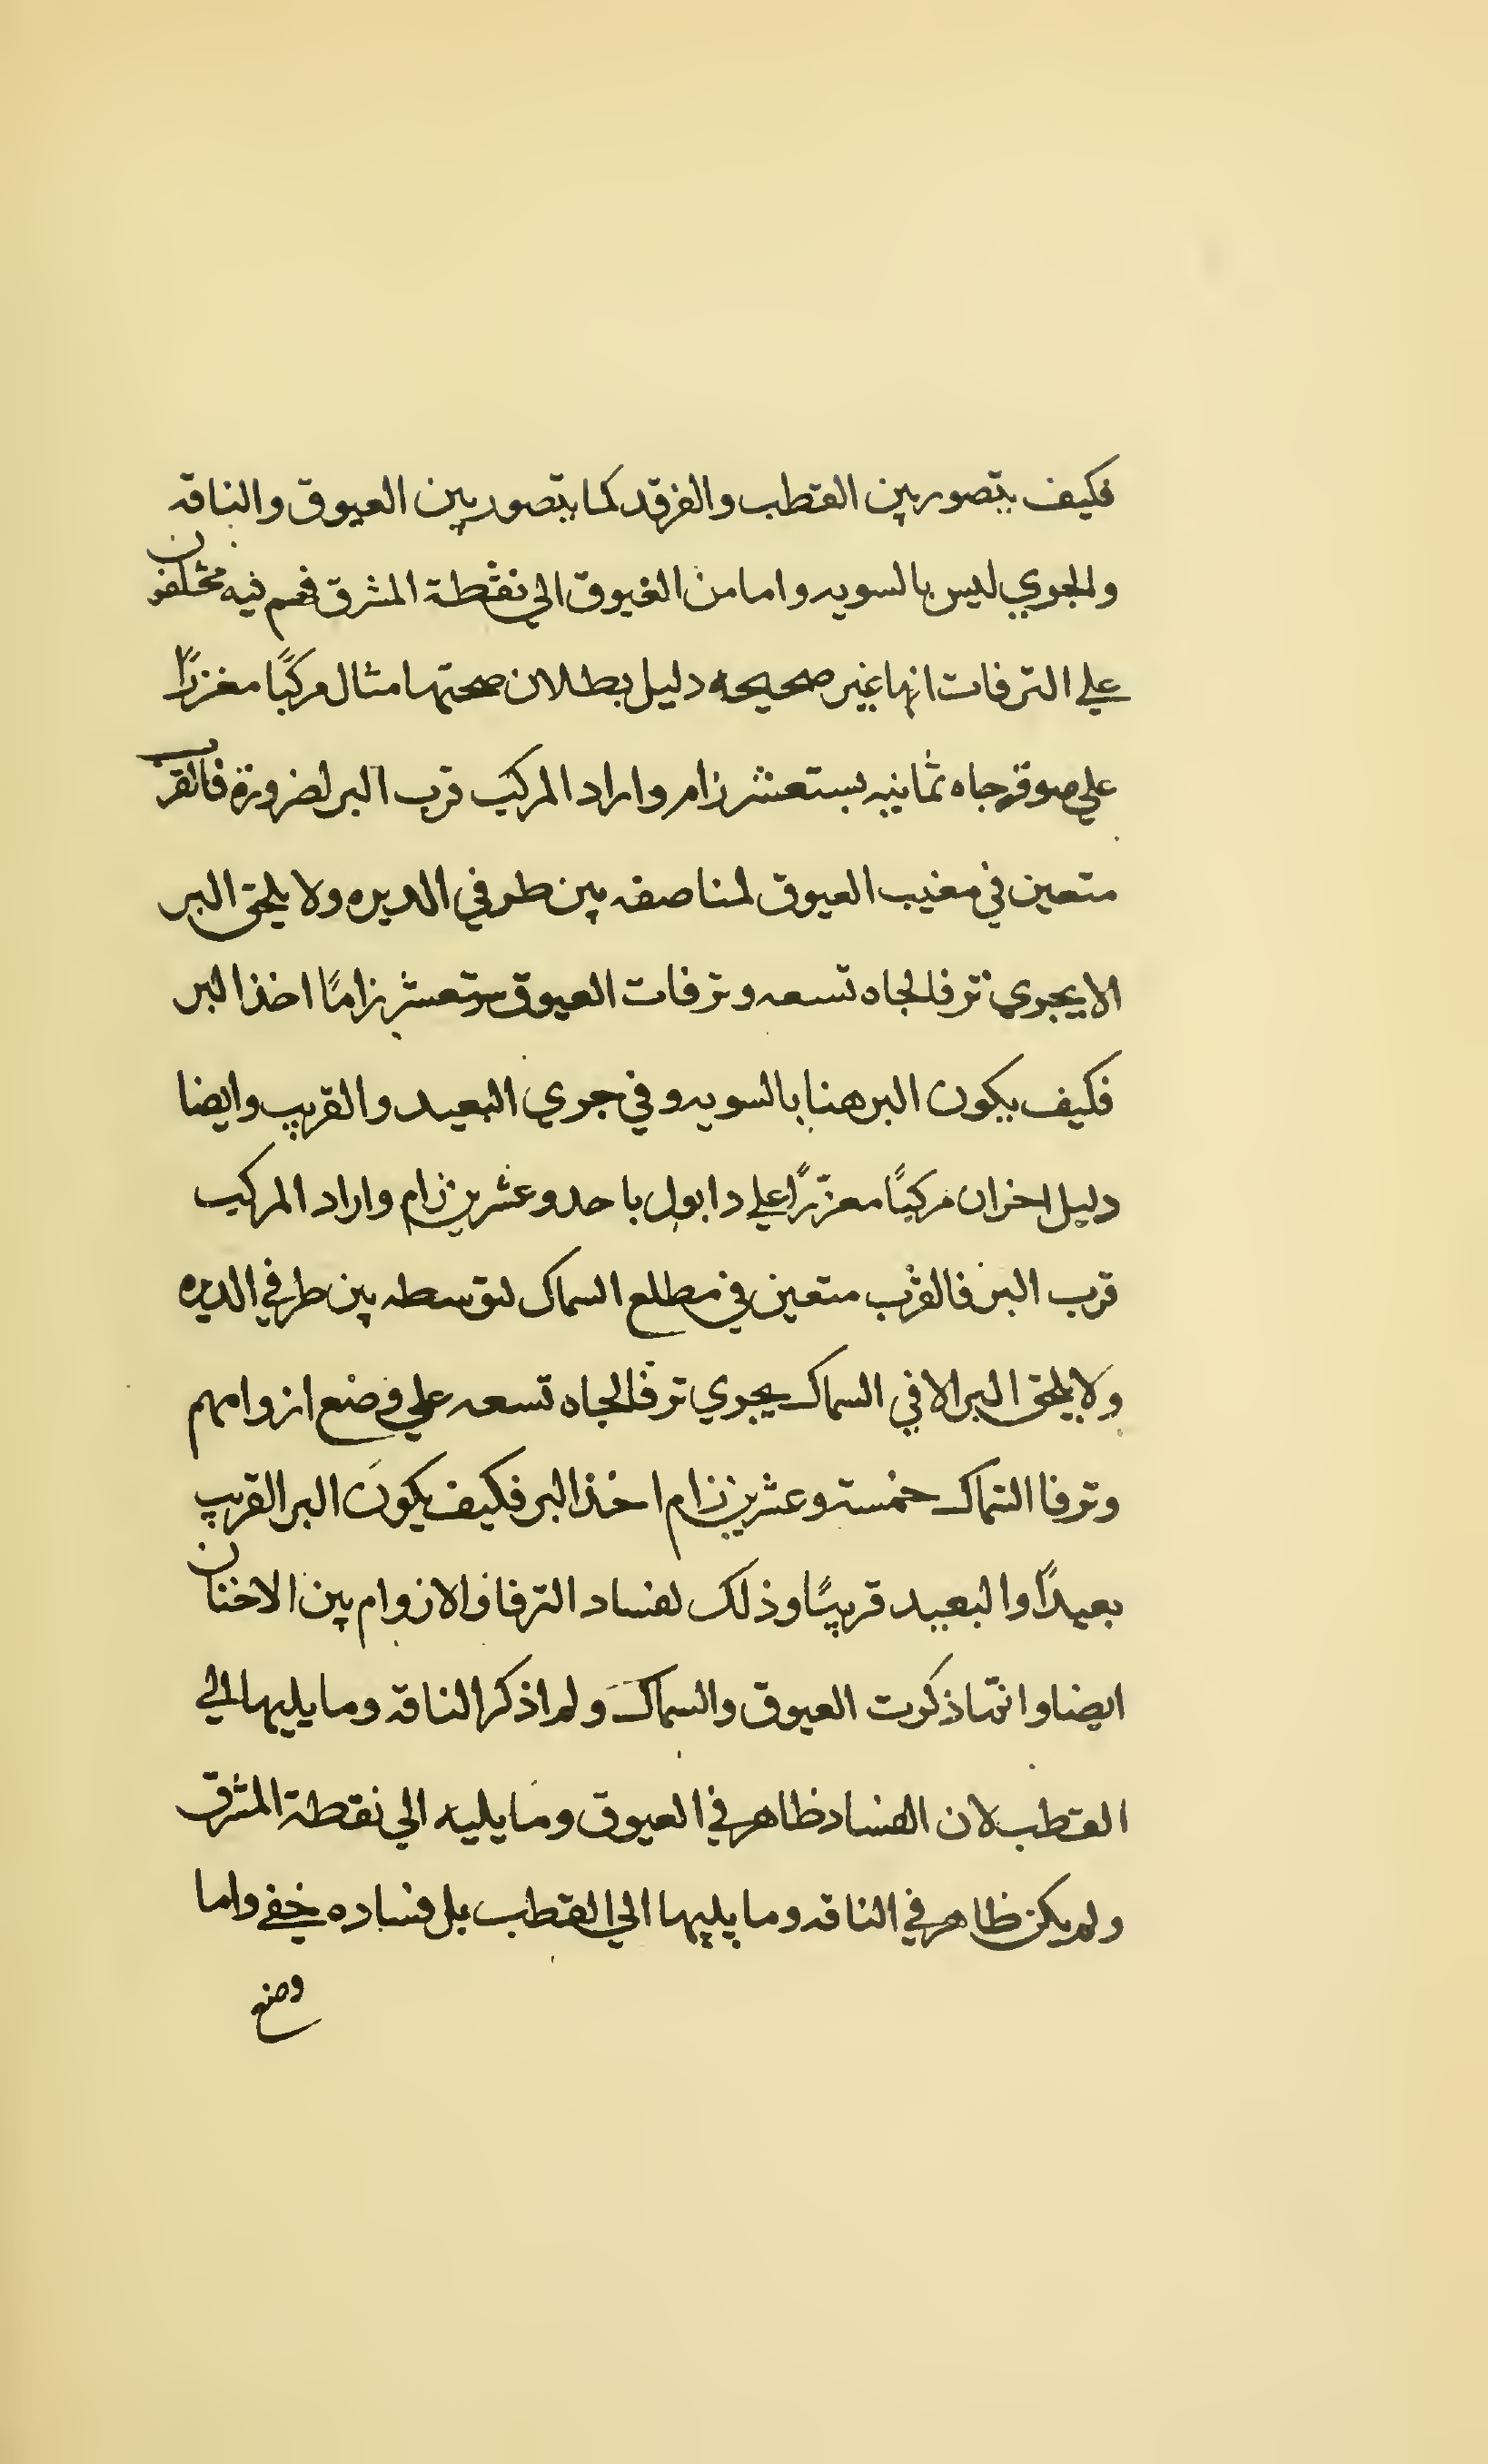 فكيف يتصور بين القطب والفرقد كما يتصور بين العيوق والناقه
والمجري ليس بالسويه واما من العيوق الي نقطة المشرق فهم فيه مختلفون
علي الترفات انها غير صحيحه دليل بطلان صحتها مثال مركبًا مغزرًا
علي صوقره جاه ثمانيه بستعشر زام واراد المركب قرب البر لضرورة فالقرب
متعين في مغيب العيوق لمناصفه بين طرفي الديره ولا يلحق البر
الا يجري ترفا لجاه تسعه وترفات العيوق ستعشر زامًا اخذ البر
فكيف يكون البر هنا بالسويه وفي جري البعيد والقريب وايضا
دليل اخر ان مركبًا معزّرًا علي دابول باحد وعشرين زام واراد المركب
قرب البر فالقرب متعين في مطلع السماك لتوسطه بين طرفي الديره
ولا يلحق البر الا في السماك يجري ترفا لجاه تسعه علي وضع ازوامهم
وترفا السماك خمسة وعشرين زام اخذ البر فكيف يكون البر القريب
بعيدًا والبعيد قريبًا وذلك لفساد الترفا والازوام بين الاخنان
ايضا وانما ذكرت العيوق والسماك ولم اذكر الناقه وما يليها الي
القطب لان الفساد ظاهر في العيوق وما يليه الي نقطة المشرق
ولم يكن ظاهر في الناقه وما يليها الي القطب بل فساده خفي واما
وضع